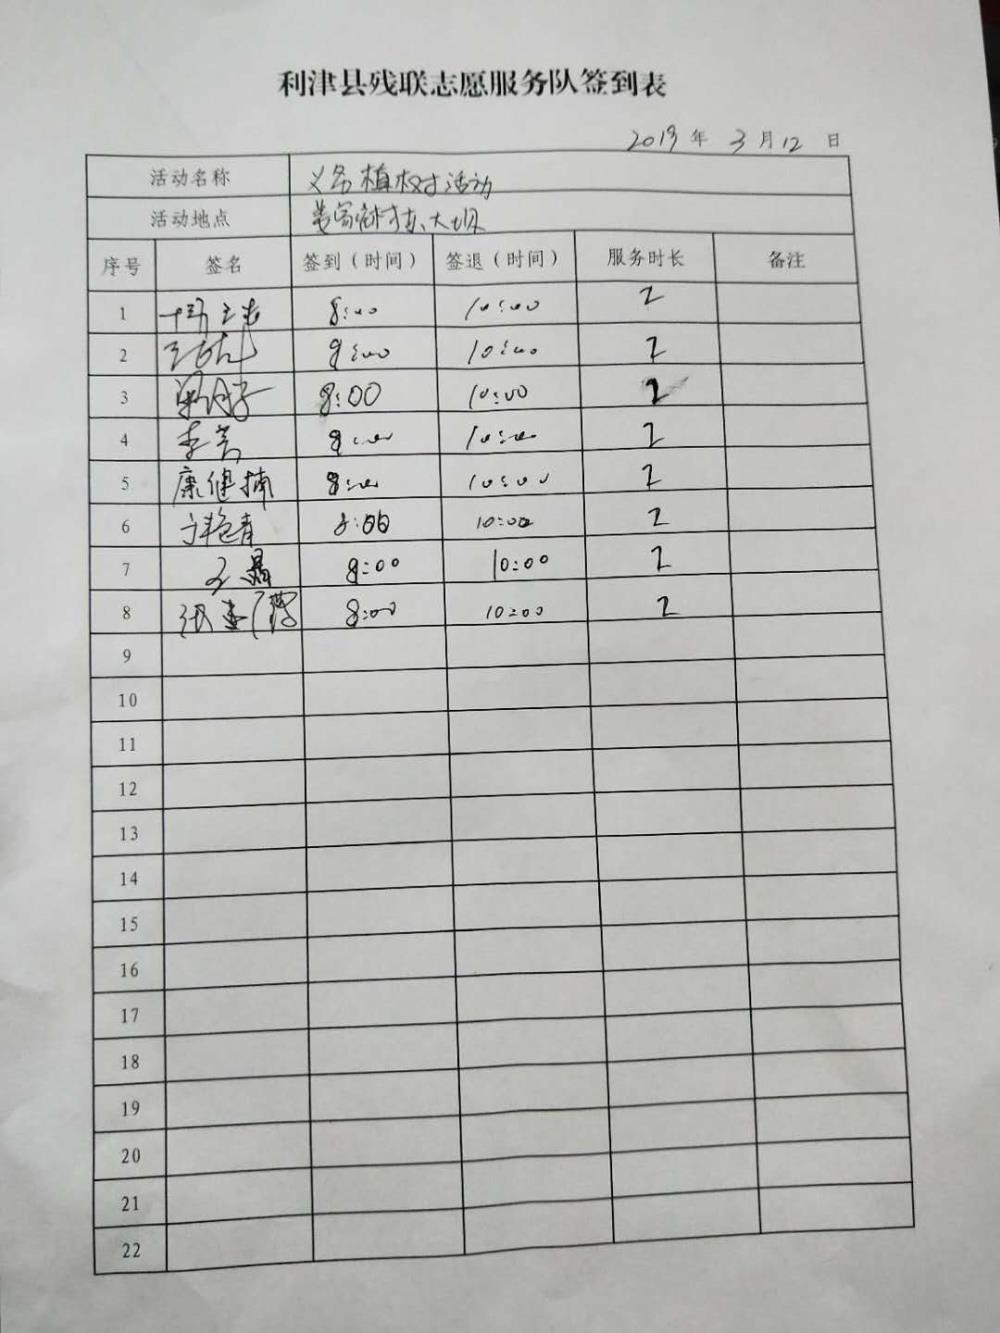 利津县残联志愿服务队签到表
2019 年 3 月 12 日
活动名称 义务植树活动
活动地点 大坝
序号 签名 签到（时间） 签退（时间） 服务时长 备注
1 8:00 10:00 2
2 8:00 10:00 2
3 8:00 10:00 2
4 李芳 8:00 10:00 2
5 康健楠 8:00 10:00 2
6 许艳青 8:00 10:00 2
7 8:00 10:00 2
8 张 8:00 10:00 2
9
10
11
12
13
14
15
16
17
18
19
20
21
22